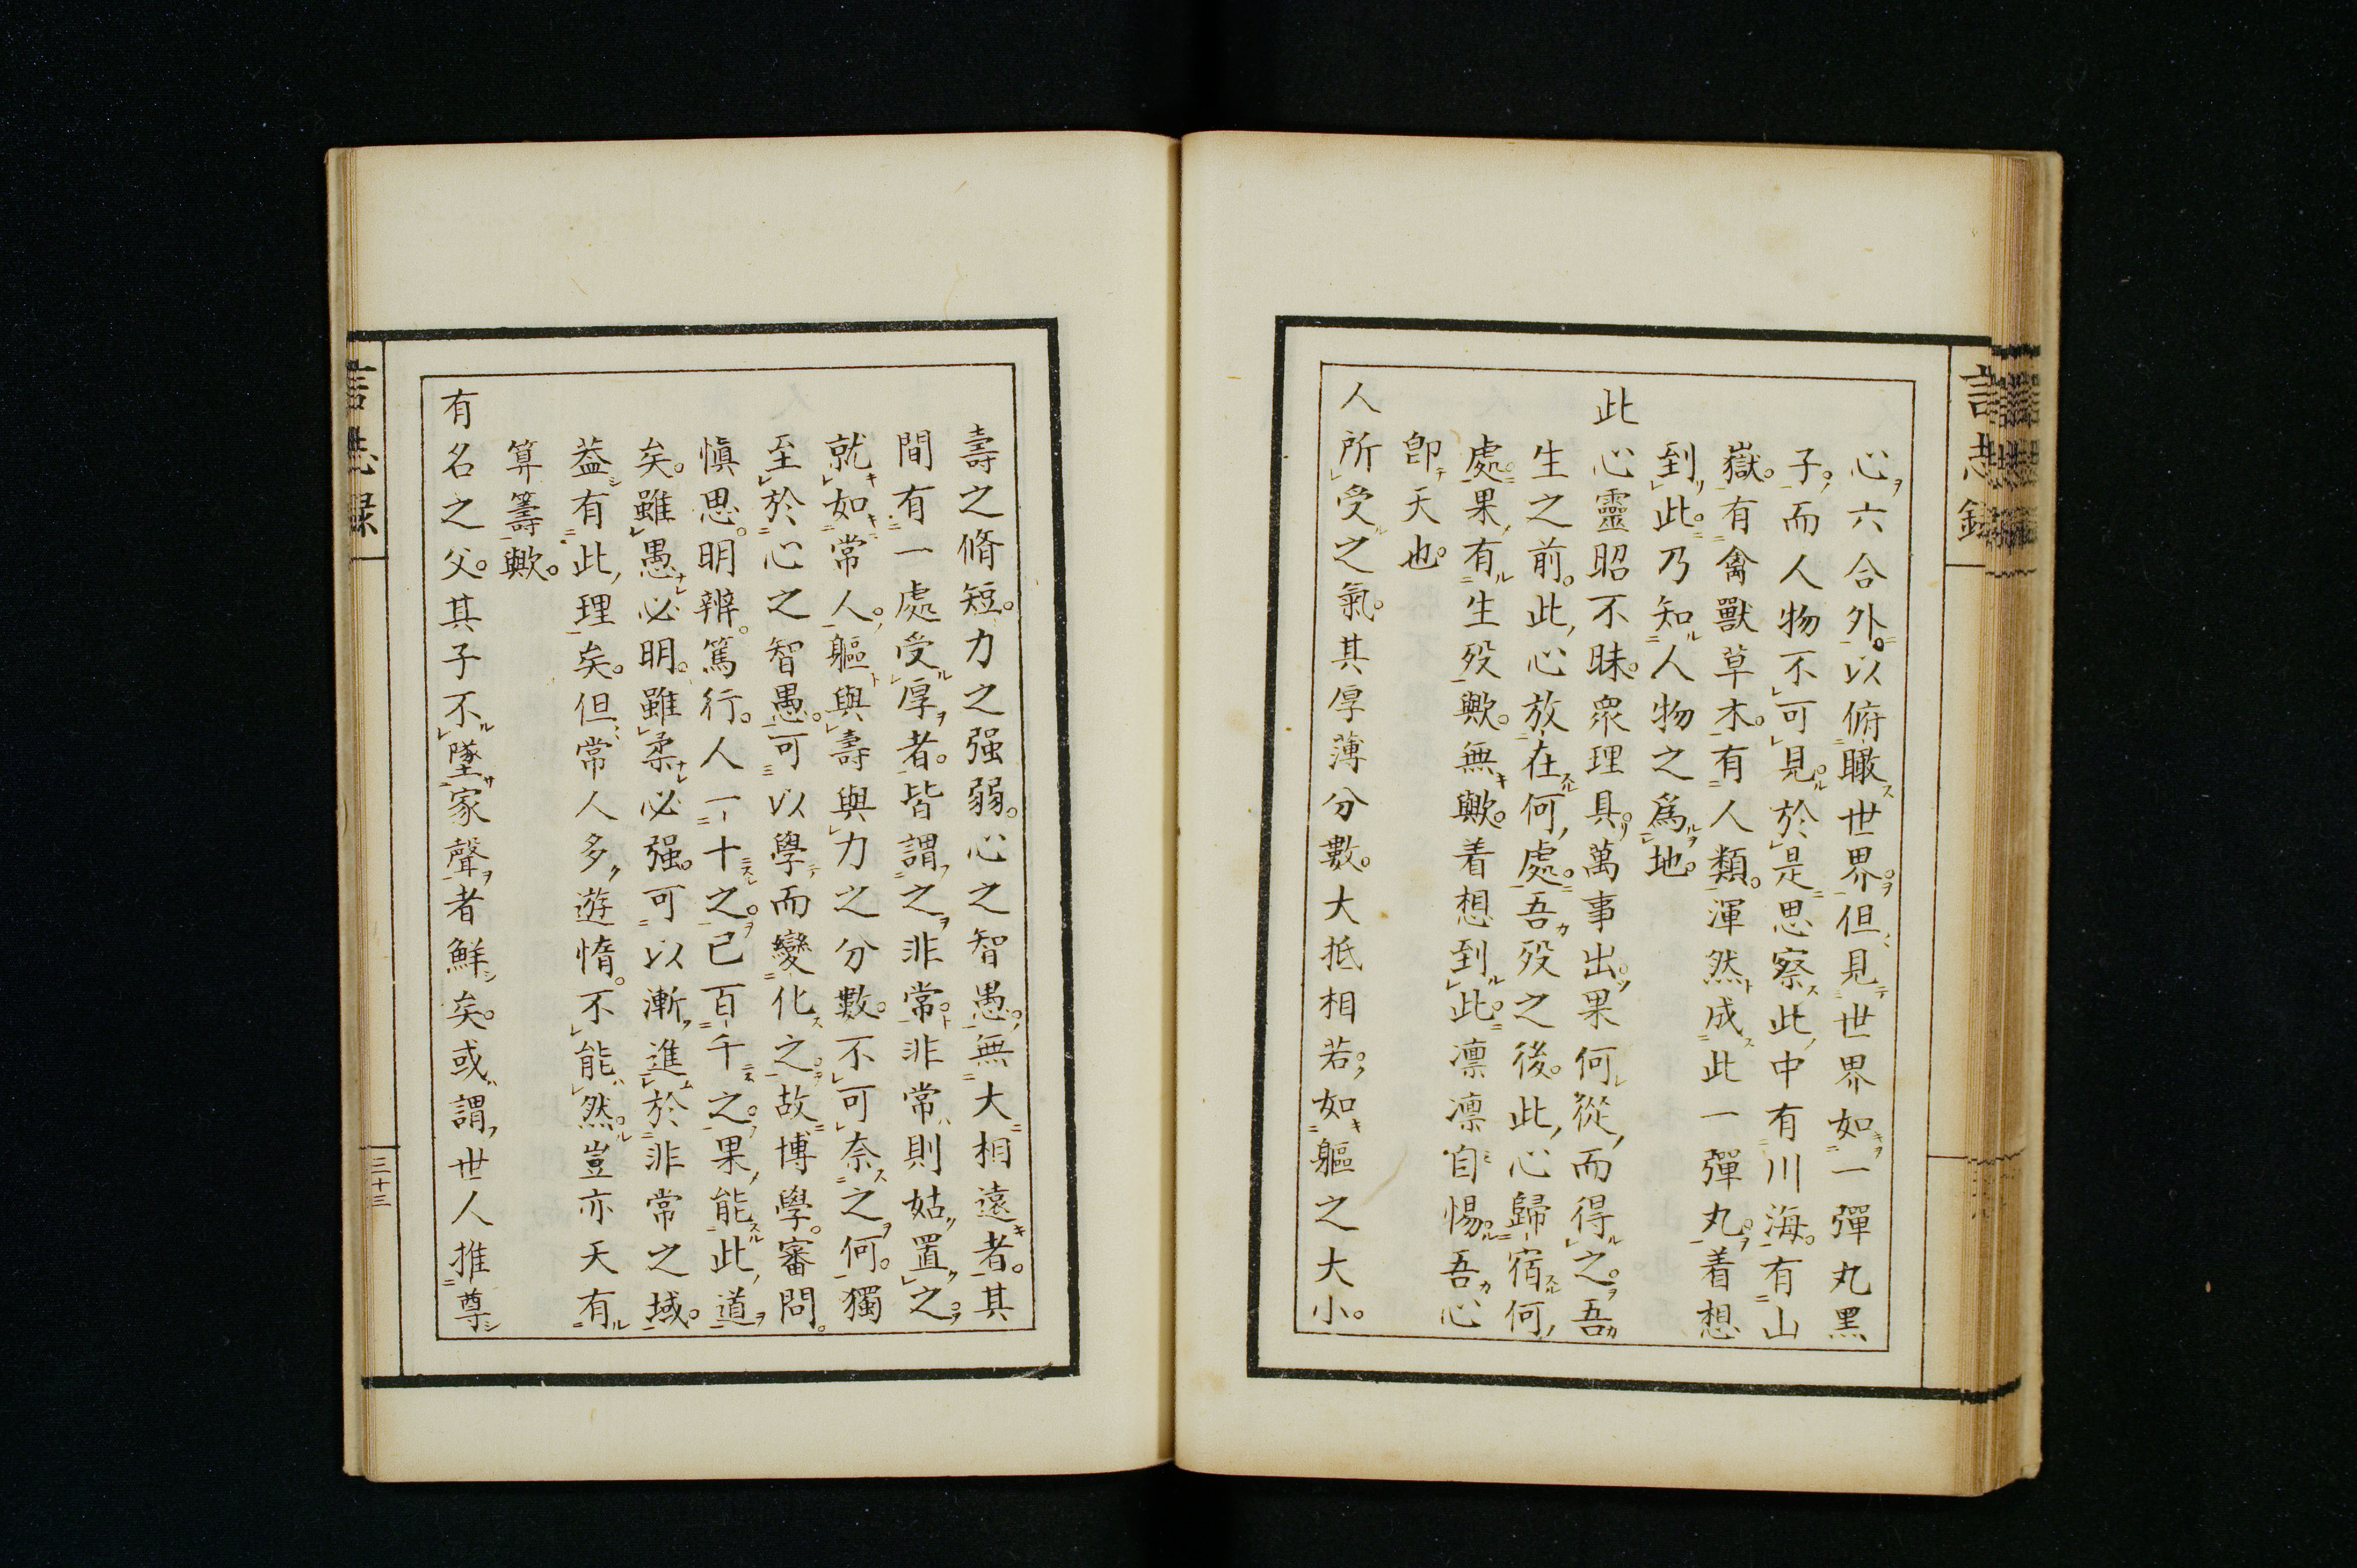 言志録
心六合外。以俯瞰世界。但見世界如一彈丸黑
子。而人物不可見。於是思察此中有川海。有山
嶽。有禽獸草木。有人類。渾然成此一彈丸。着想
到此。乃知人物之爲地。
此心靈昭不昧。衆理具。萬事出。果何從而得之。吾
生之前。此心放在何處。吾歿之後。此心歸宿何
處。果有生歿歟。無歟。着想到此。凛凛自惕。吾心
卽天也。
人所受之氣。其厚薄分數。大抵相若。如軀之大小。
壽之脩短。力之强弱。心之智愚。無大相遠者。其
間有一處受厚者。皆謂之非常。非常則姑置之。
就如常人。軀與壽與力之分數。不可奈之何。獨
至於心之智愚。可以學而變化之。故博學。審問。
愼思。明辨。篤行。人一十之。己百千之。果能此道
矣。雖愚必明。雖柔必强。可以漸進於非常之域。
葢有此理矣。但常人多遊惰。不能然。豈亦天有
算籌歟。
有名之父。其子不墜家聲者鮮矣。或謂世人推尊
言志録
三十三